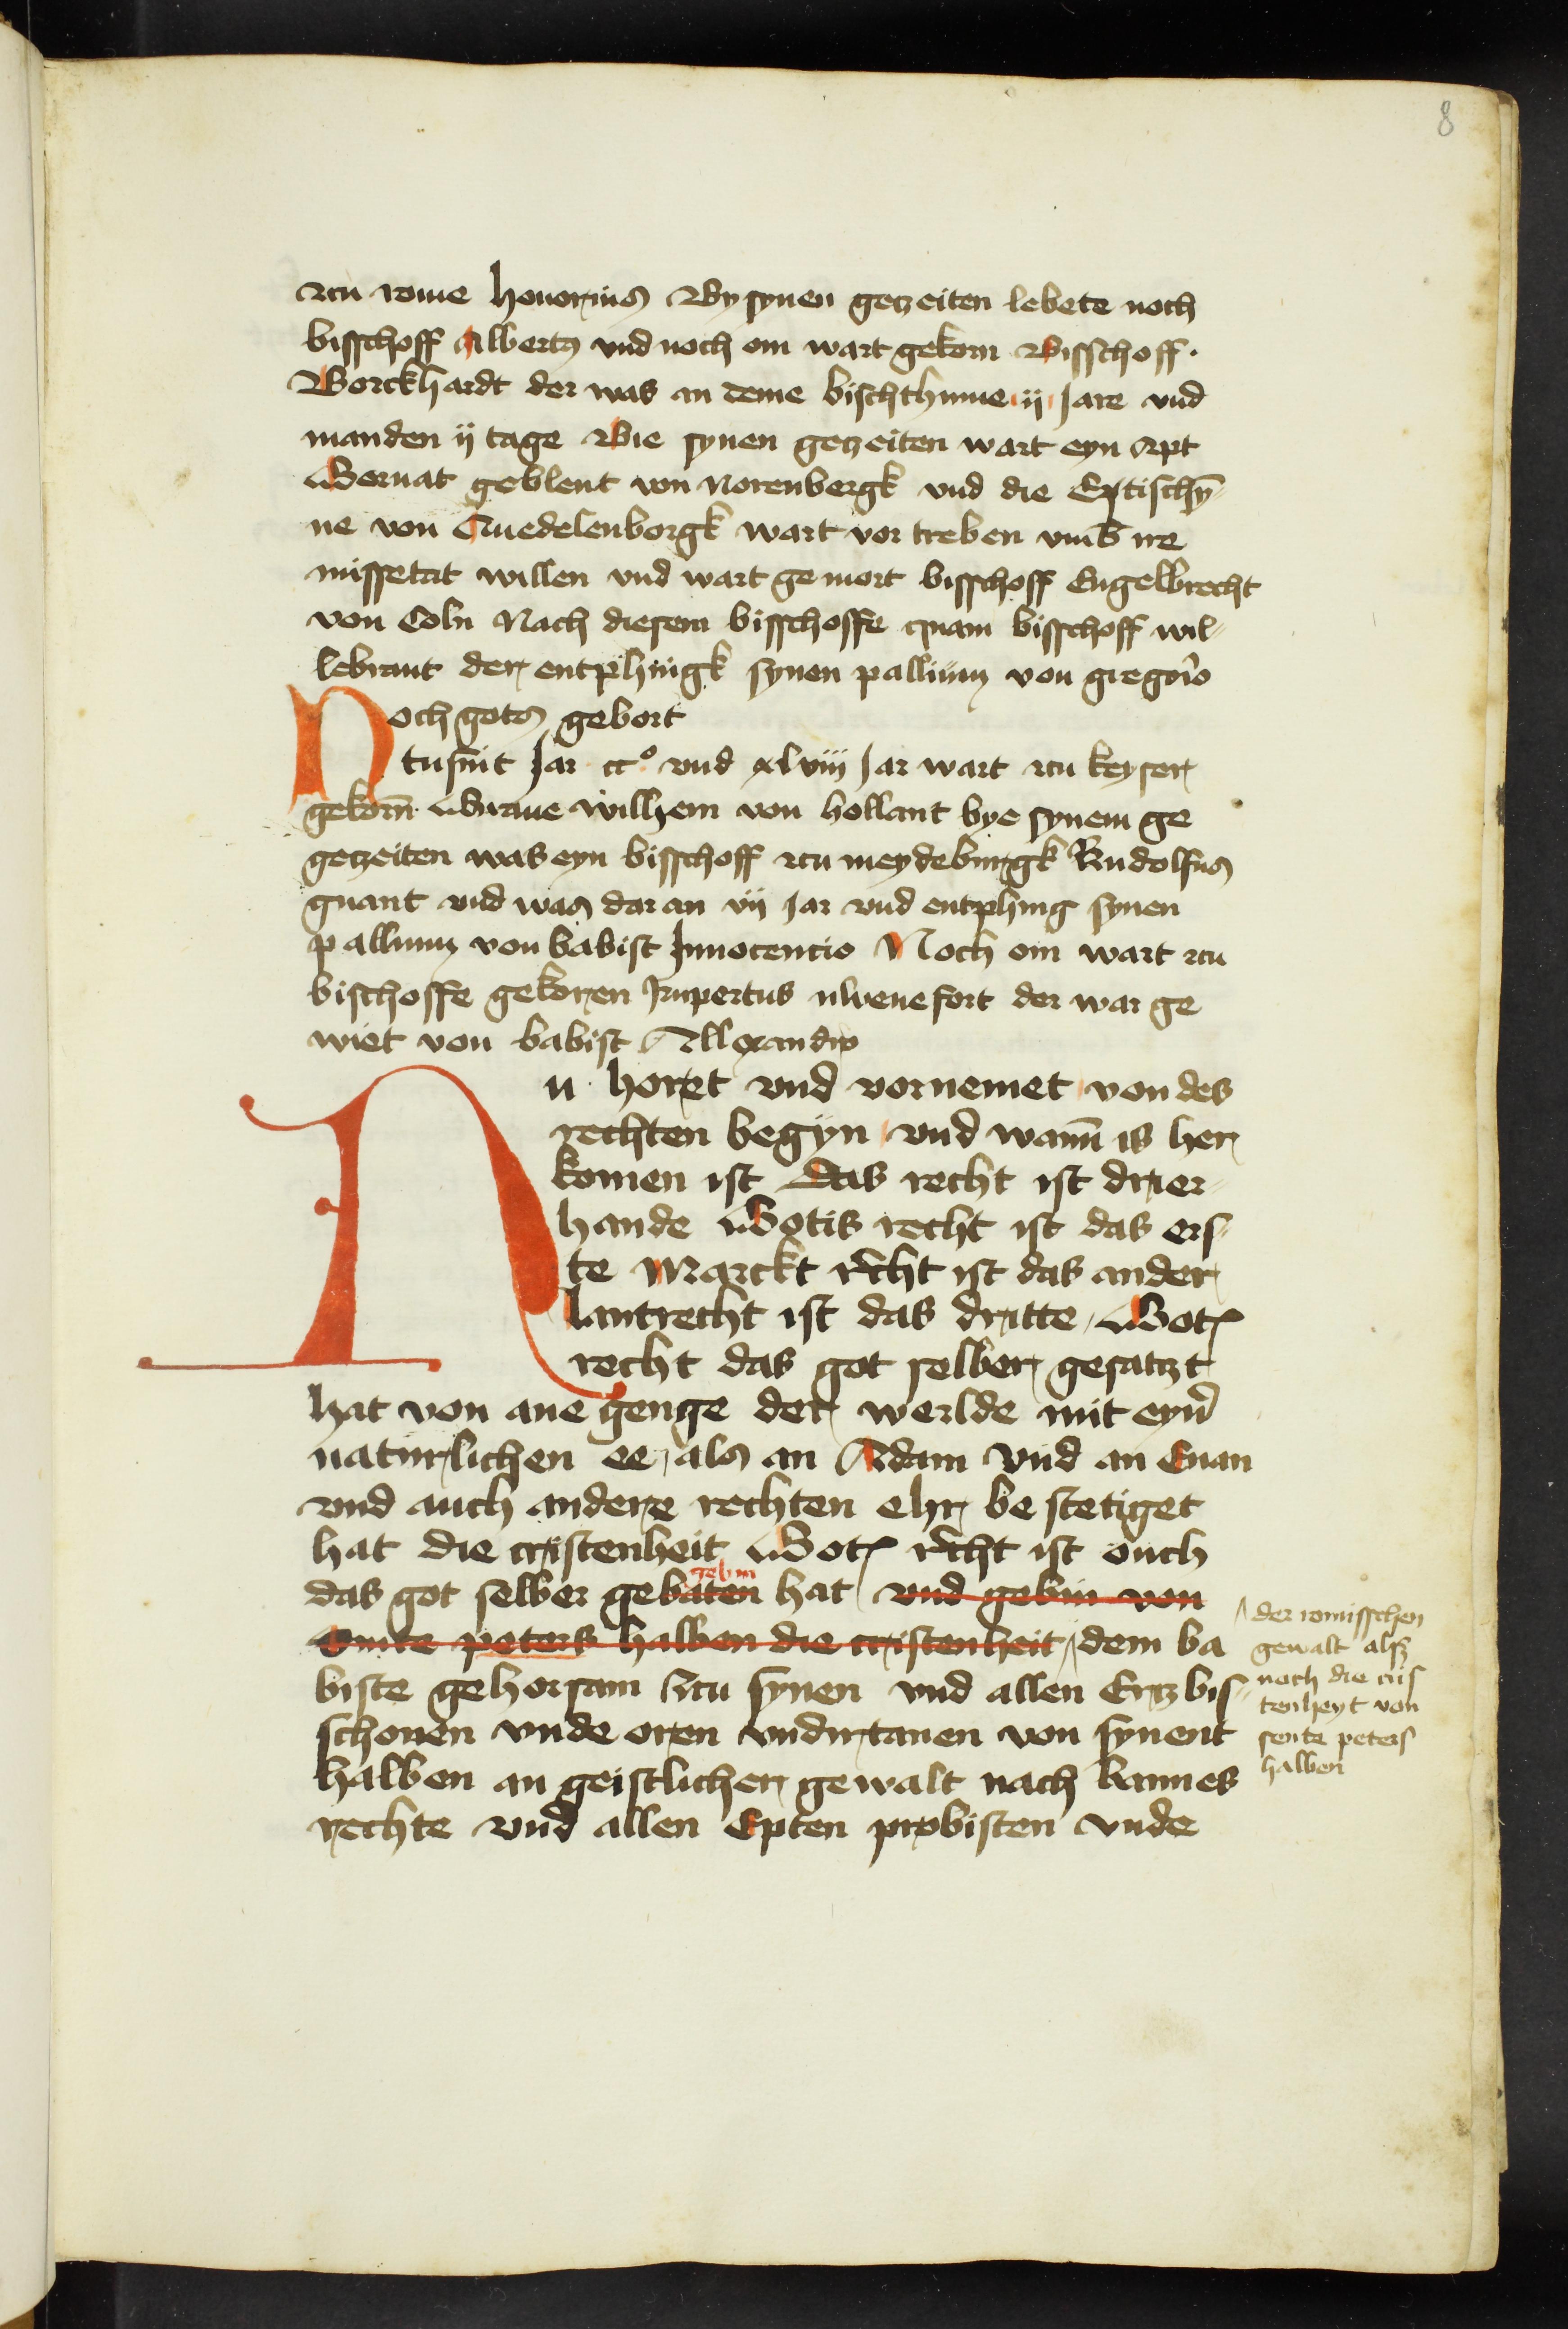 8
zcu rome honorius By synen getzeiten lebete noch
bisschoff Albertus vnd noch om wart gekorn Bisschoff.
Borckhardt der was an deme bischthume ij Jare vnd
manden ij tage Bie synen getzeiten wart eyn apt
Gernat geblent von Norenbergk vnd die Eptischyn̄-
ne von Quedelenborgk wart vor treben vmb ire
missetat willen vnd wart ge mort bisschoff Engelbrecht
von Coln Nach diesem bisschoffe quam bisschoff wil-
lebrant der entphingk synen pallium von gregorio
Noch gotes gebort
tusint Jar cc° vnd xlviij Jar wart zcu keyser
gekorn̄ Graue wilhem von hollant bye synem ge
getzeiten was eyn bisschoff zcu meydeburgk Rudolfus
gnant vnd was dar an vij Jar vnd entphing synen
pallium von babist Innocencio Noch om wart zcu
bischoffe gekoren Rupertus uluenefort der war ge
wiet von babist Allexandro
Nu horet vnd vornemet von des
rechten begyn vnd wann̄ is her
komen ist Das recht ist drier-
hande Gotis recht ist das ers-
te Marckt r̄cht ist das ander
lantrecht ist das dritte Gotz
recht das got selber gesatzt
hat von ane genge der werlde mit eyn̄
naturlichen ee als an Adam vnd an Euan
vnd auch andere rechten ehr be stetiget
hat die cristenheit Gotz r̄cht ist ouch
gebin
das got selber gebaten hat vnd gebin von
Sinte peters halben die cristenheit dem ba
biste gehorsam zcu synen vnd allen Ertzbis-
schouen vnde oren vndirtanen von synent
halben an geistlicher gewalt nach kannes
rechte vnd allen Epten probisten vnde
der romisschen
gewalt alsz
noch die cris
tenheyt von
sente peters
halben